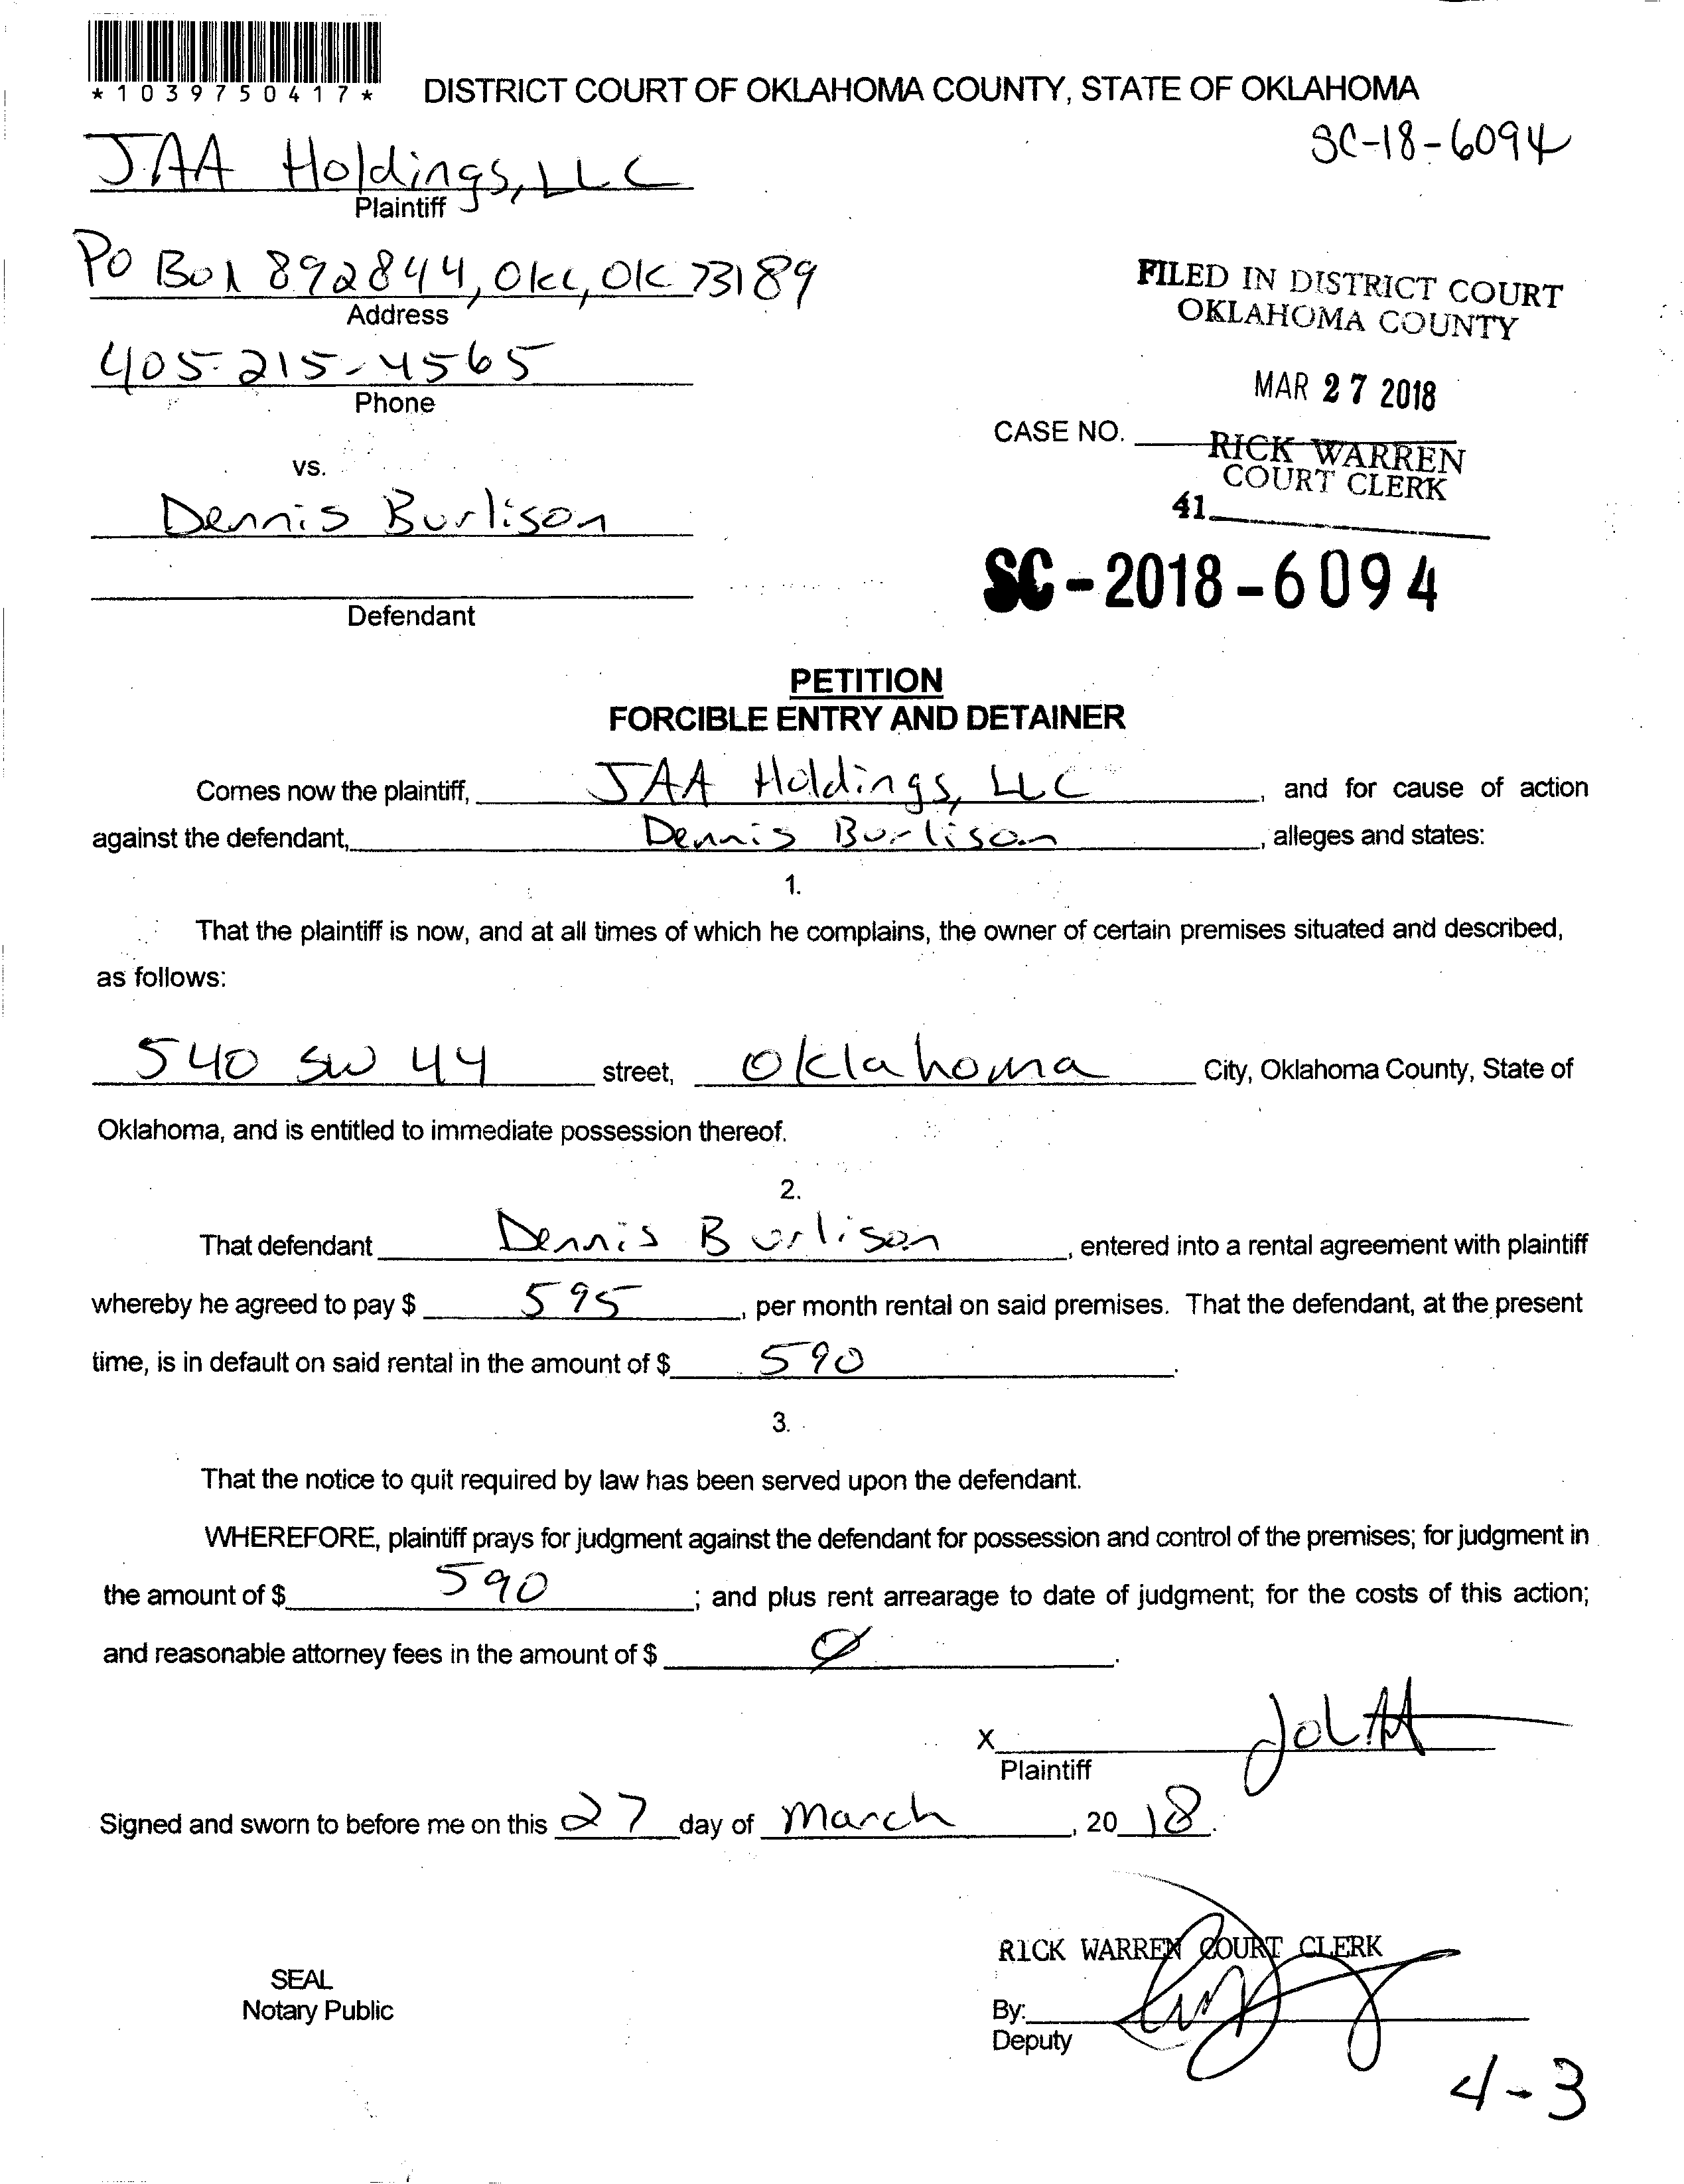 *1039750417*
DISTRICT COURT OF OKLAHOMA COUNTY, STATE OF OKLAHOMA
SC-18-6094
JAA Holdings, LLC
Plaintiff
PO Box 892844, OKC, OK 73189
Address
FILED IN DISTRICT COURT
OKLAHOMA COUNTY
405-215-4565
Phone
MAR 27 2018
CASE NO.
RICK WARREN
COURT CLERK
vs.
41
Dennis Burlison
Defendant
SC-2018-6094
PETITION
FORCIBLE ENTRY AND DETAINER
Comes now the plaintiff, JAA Holdings, LLC, and for cause of action
against the defendant, Dennis Burlison, alleges and states:
1.
That the plaintiff is now, and at all times of which he complains, the owner of certain premises situated and described,
as follows:
540 SW 44 street, Oklahoma City, Oklahoma County, State of
Oklahoma, and is entitled to immediate possession thereof.
2.
That defendant Dennis Burlison, entered into a rental agreement with plaintiff
whereby he agreed to pay $ 595, per month rental on said premises. That the defendant, at the present
time, is in default on said rental in the amount of $ 590.
3.
That the notice to quit required by law has been served upon the defendant.
WHEREFORE, plaintiff prays for judgment against the defendant for possession and control of the premises; for judgment in
the amount of $ 590; and plus rent arrearage to date of judgment; for the costs of this action;
and reasonable attorney fees in the amount of $ 0.
X
Plaintiff
Signed and sworn to before me on this 27 day of March, 20 18.
RICK WARREN COURT CLERK
SEAL
Notary Public
By:
Deputy
4-3